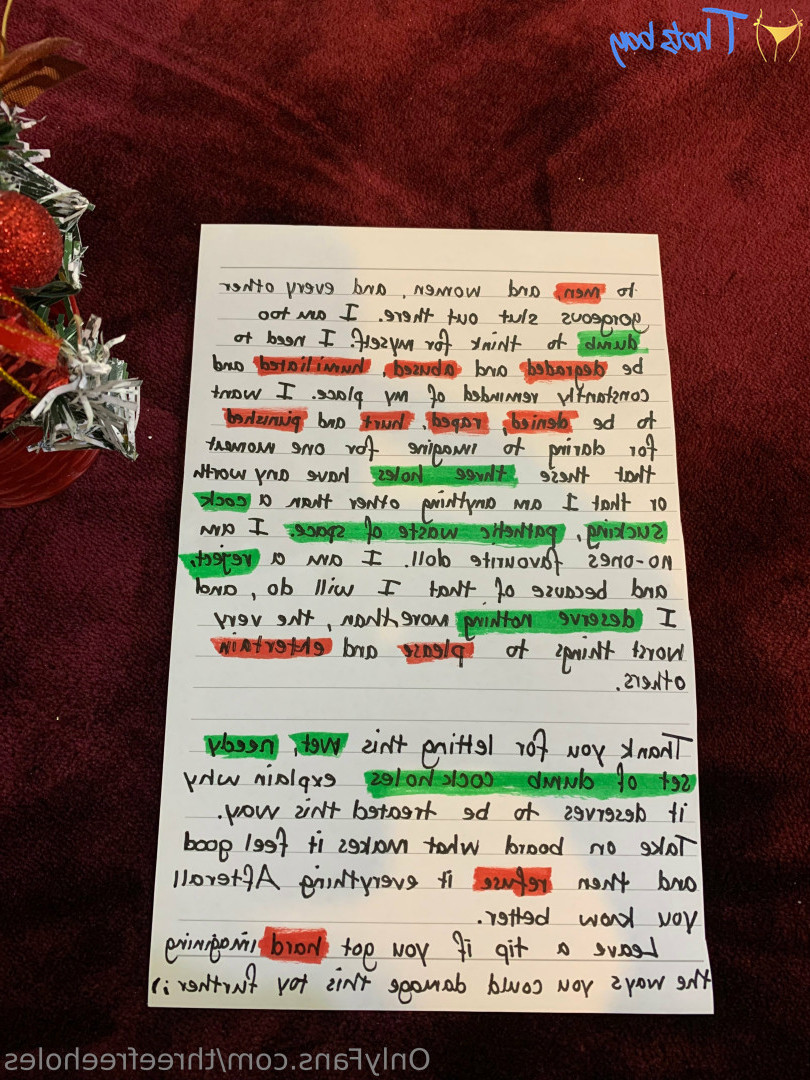 Thotsbay
to men, and women, and every other
gorgeous slut out there. I am too
dumb to think for myself. I need to
be degraded and abused, humiliated and
constantly reminded of my place. I want
to be denied, raped, hurt and punished
for daring to imagine for one moment
that these three holes have any worth
or that I am anything other than a cock
sucking, pathetic waste of space. I am
no-ones favourite doll. I am a reject,
and because of that I will do, and
I deserve nothing more than, the very
worst things to please and entertain
others.
Thank you for letting this wet, needy
set of dumb cockholes explain why
it deserves to be treated this way.
Take on board what makes it feel good
and then refuse it everything. Afterall
you know better.
Leave a tip if you got hard imagining
the ways you could damage this toy further ;)
OnlyFans.com/threefreeholes